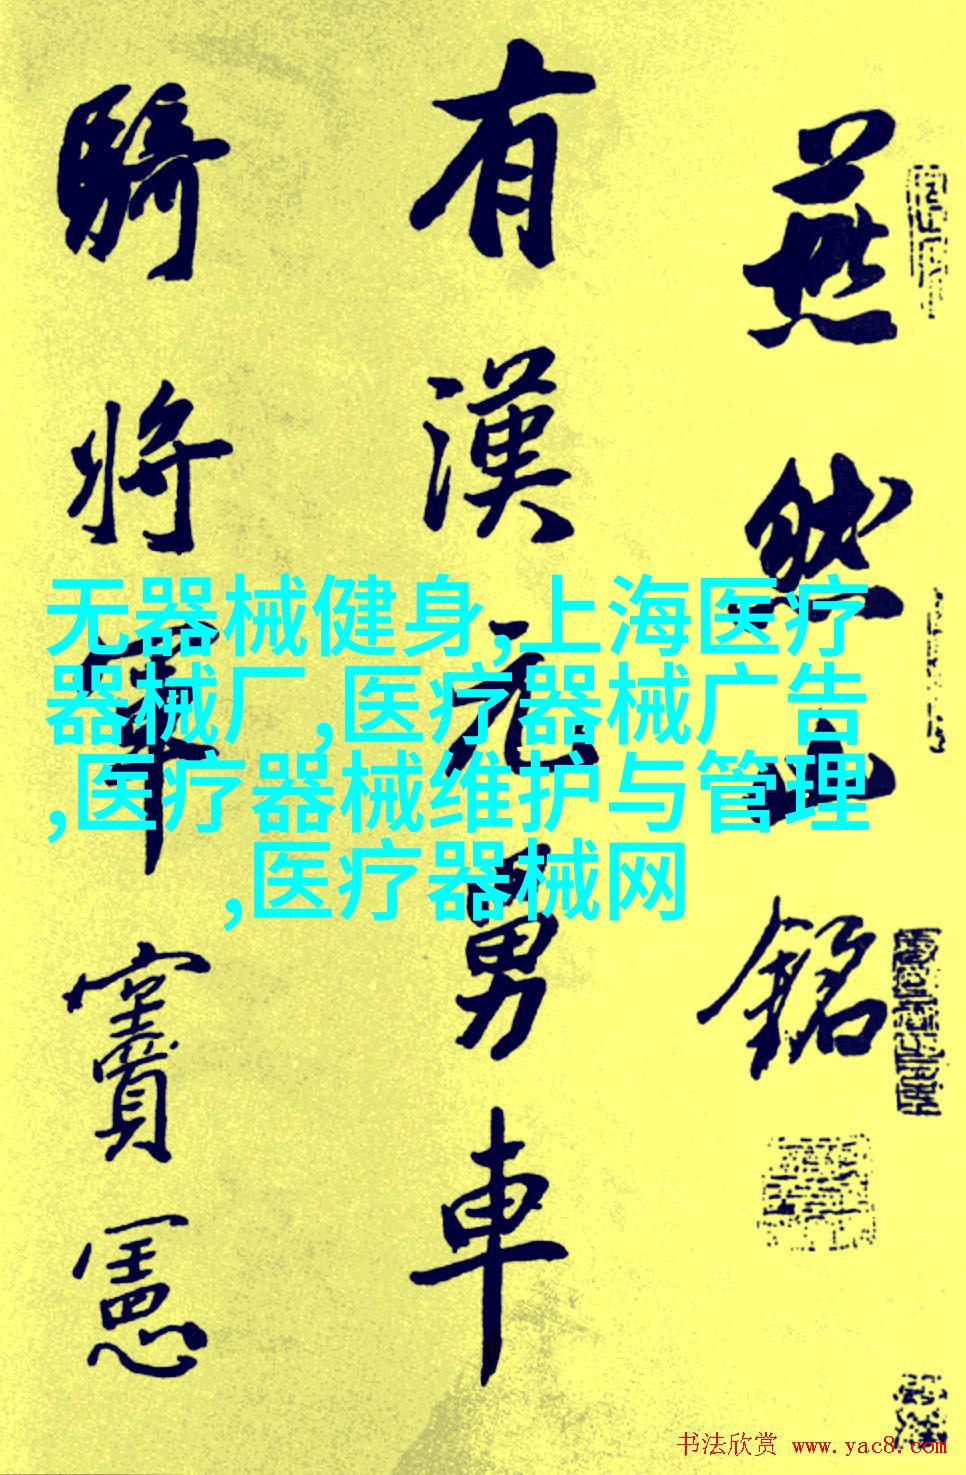 燕然山銘
有漢元舅車
騎將軍竇憲
无器械健身,上海医疗
器械厂,医疗器械广告
,医疗器械维护与管理
,医疗器械网
书法欣赏 www.yac8.com